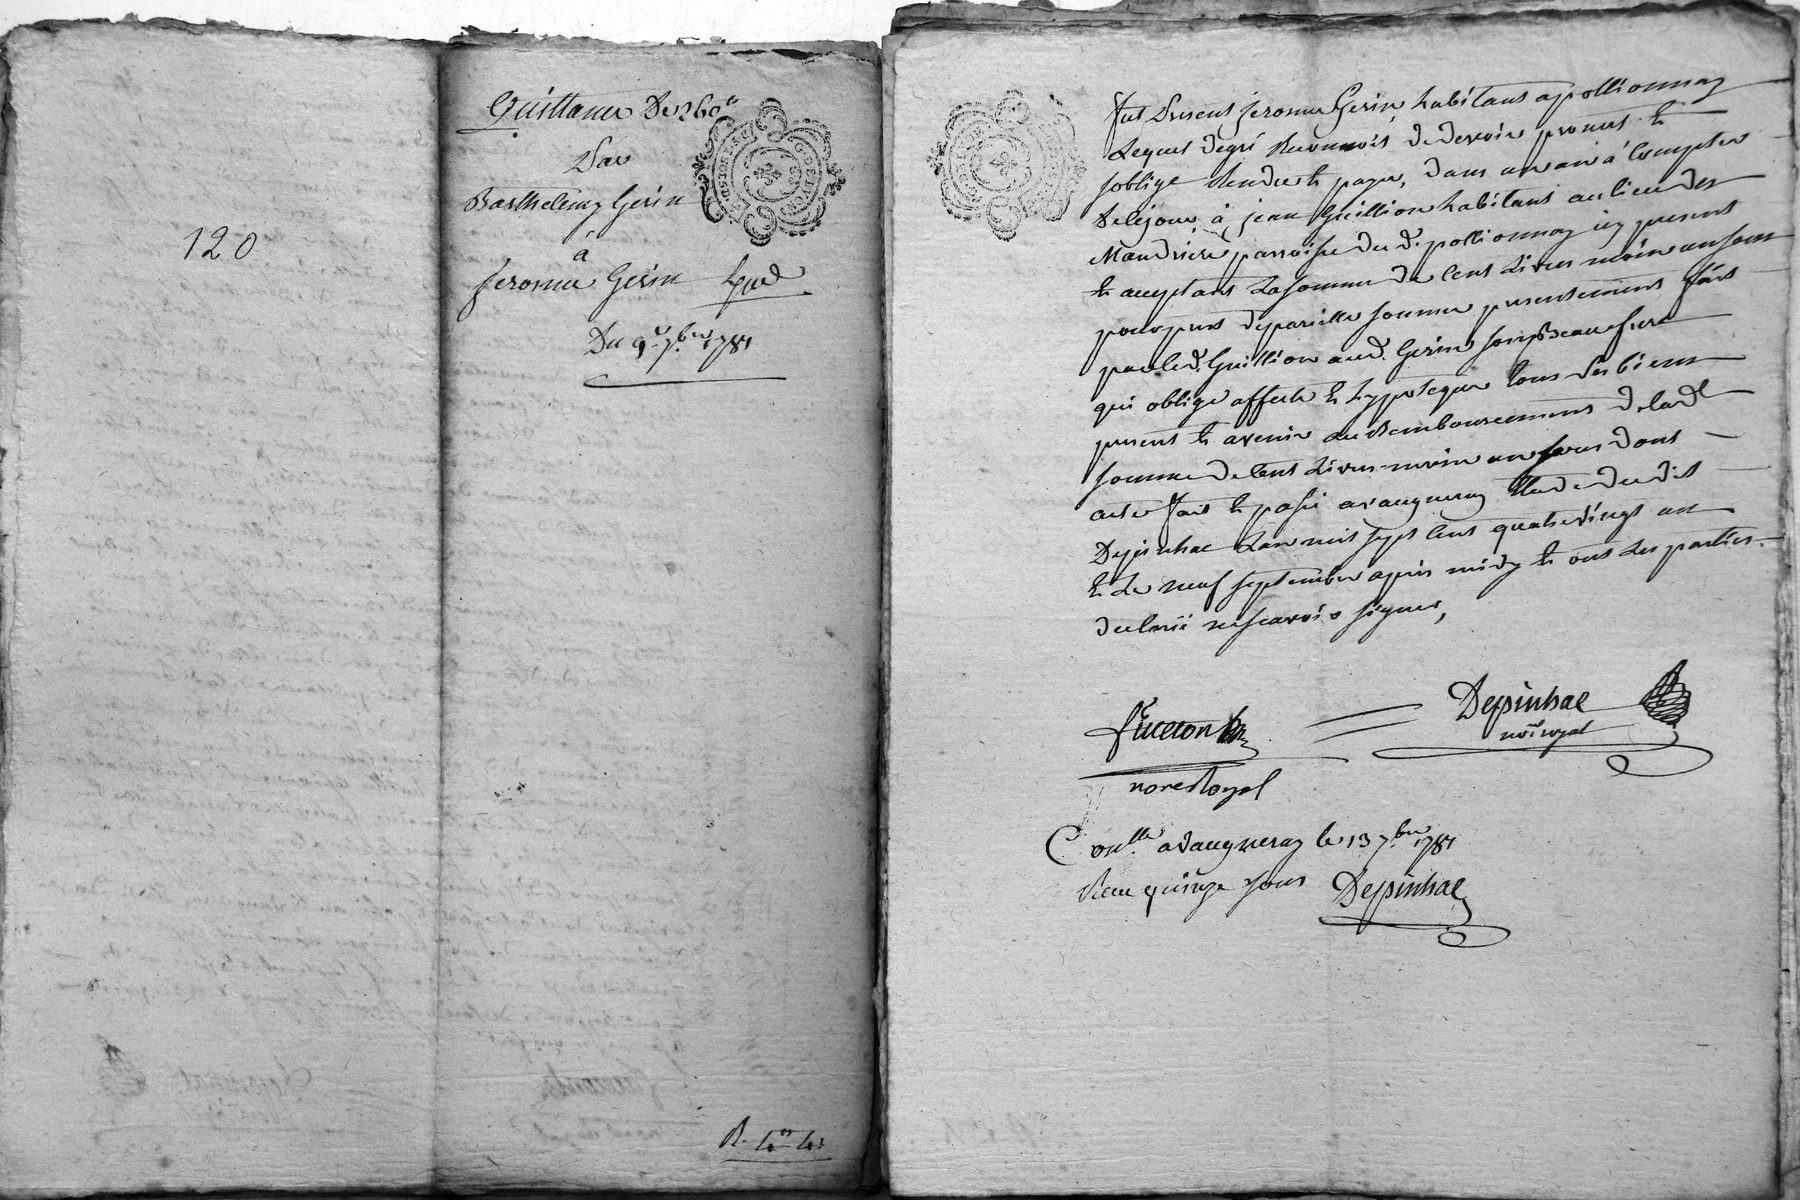 120
Quittance De 260
Par
Barthelemy Gerin
à
Jerome Gerin
Du 9.e 7.bre 1781
R.
Fut Present jerome Gerin habitant apollionnay
Lequel degré Reconnoit De devoir promet et
soblige Rendre et payer, dans un an à Compter
De cejour, à jean Guillion habitant au lieu des
Mandriere parroisse du d. pollionnay icy present
et acceptant La somme de Cent Livres moin un sous
pour pret de pareille somme presentement fait
par led. Guillion aud. Gerin son Beau frere
qui oblige affecte et hypoteque tous ses biens
present et avenir au Remboursement De lad.
somme de Cent Livres moin un sous dont
acte fait et passé avaugneray Etude dudit
Depinhac Lan mil sept cent quatrevingt un
et Le neuf septembre apres midy et ont Les parties
declaré ne scavoir signer,
Depinhac
no.re royal
noreRoyal
Con.lle avaugneray le 13 7.bre 1781
Reçu quinze sous Depinhac